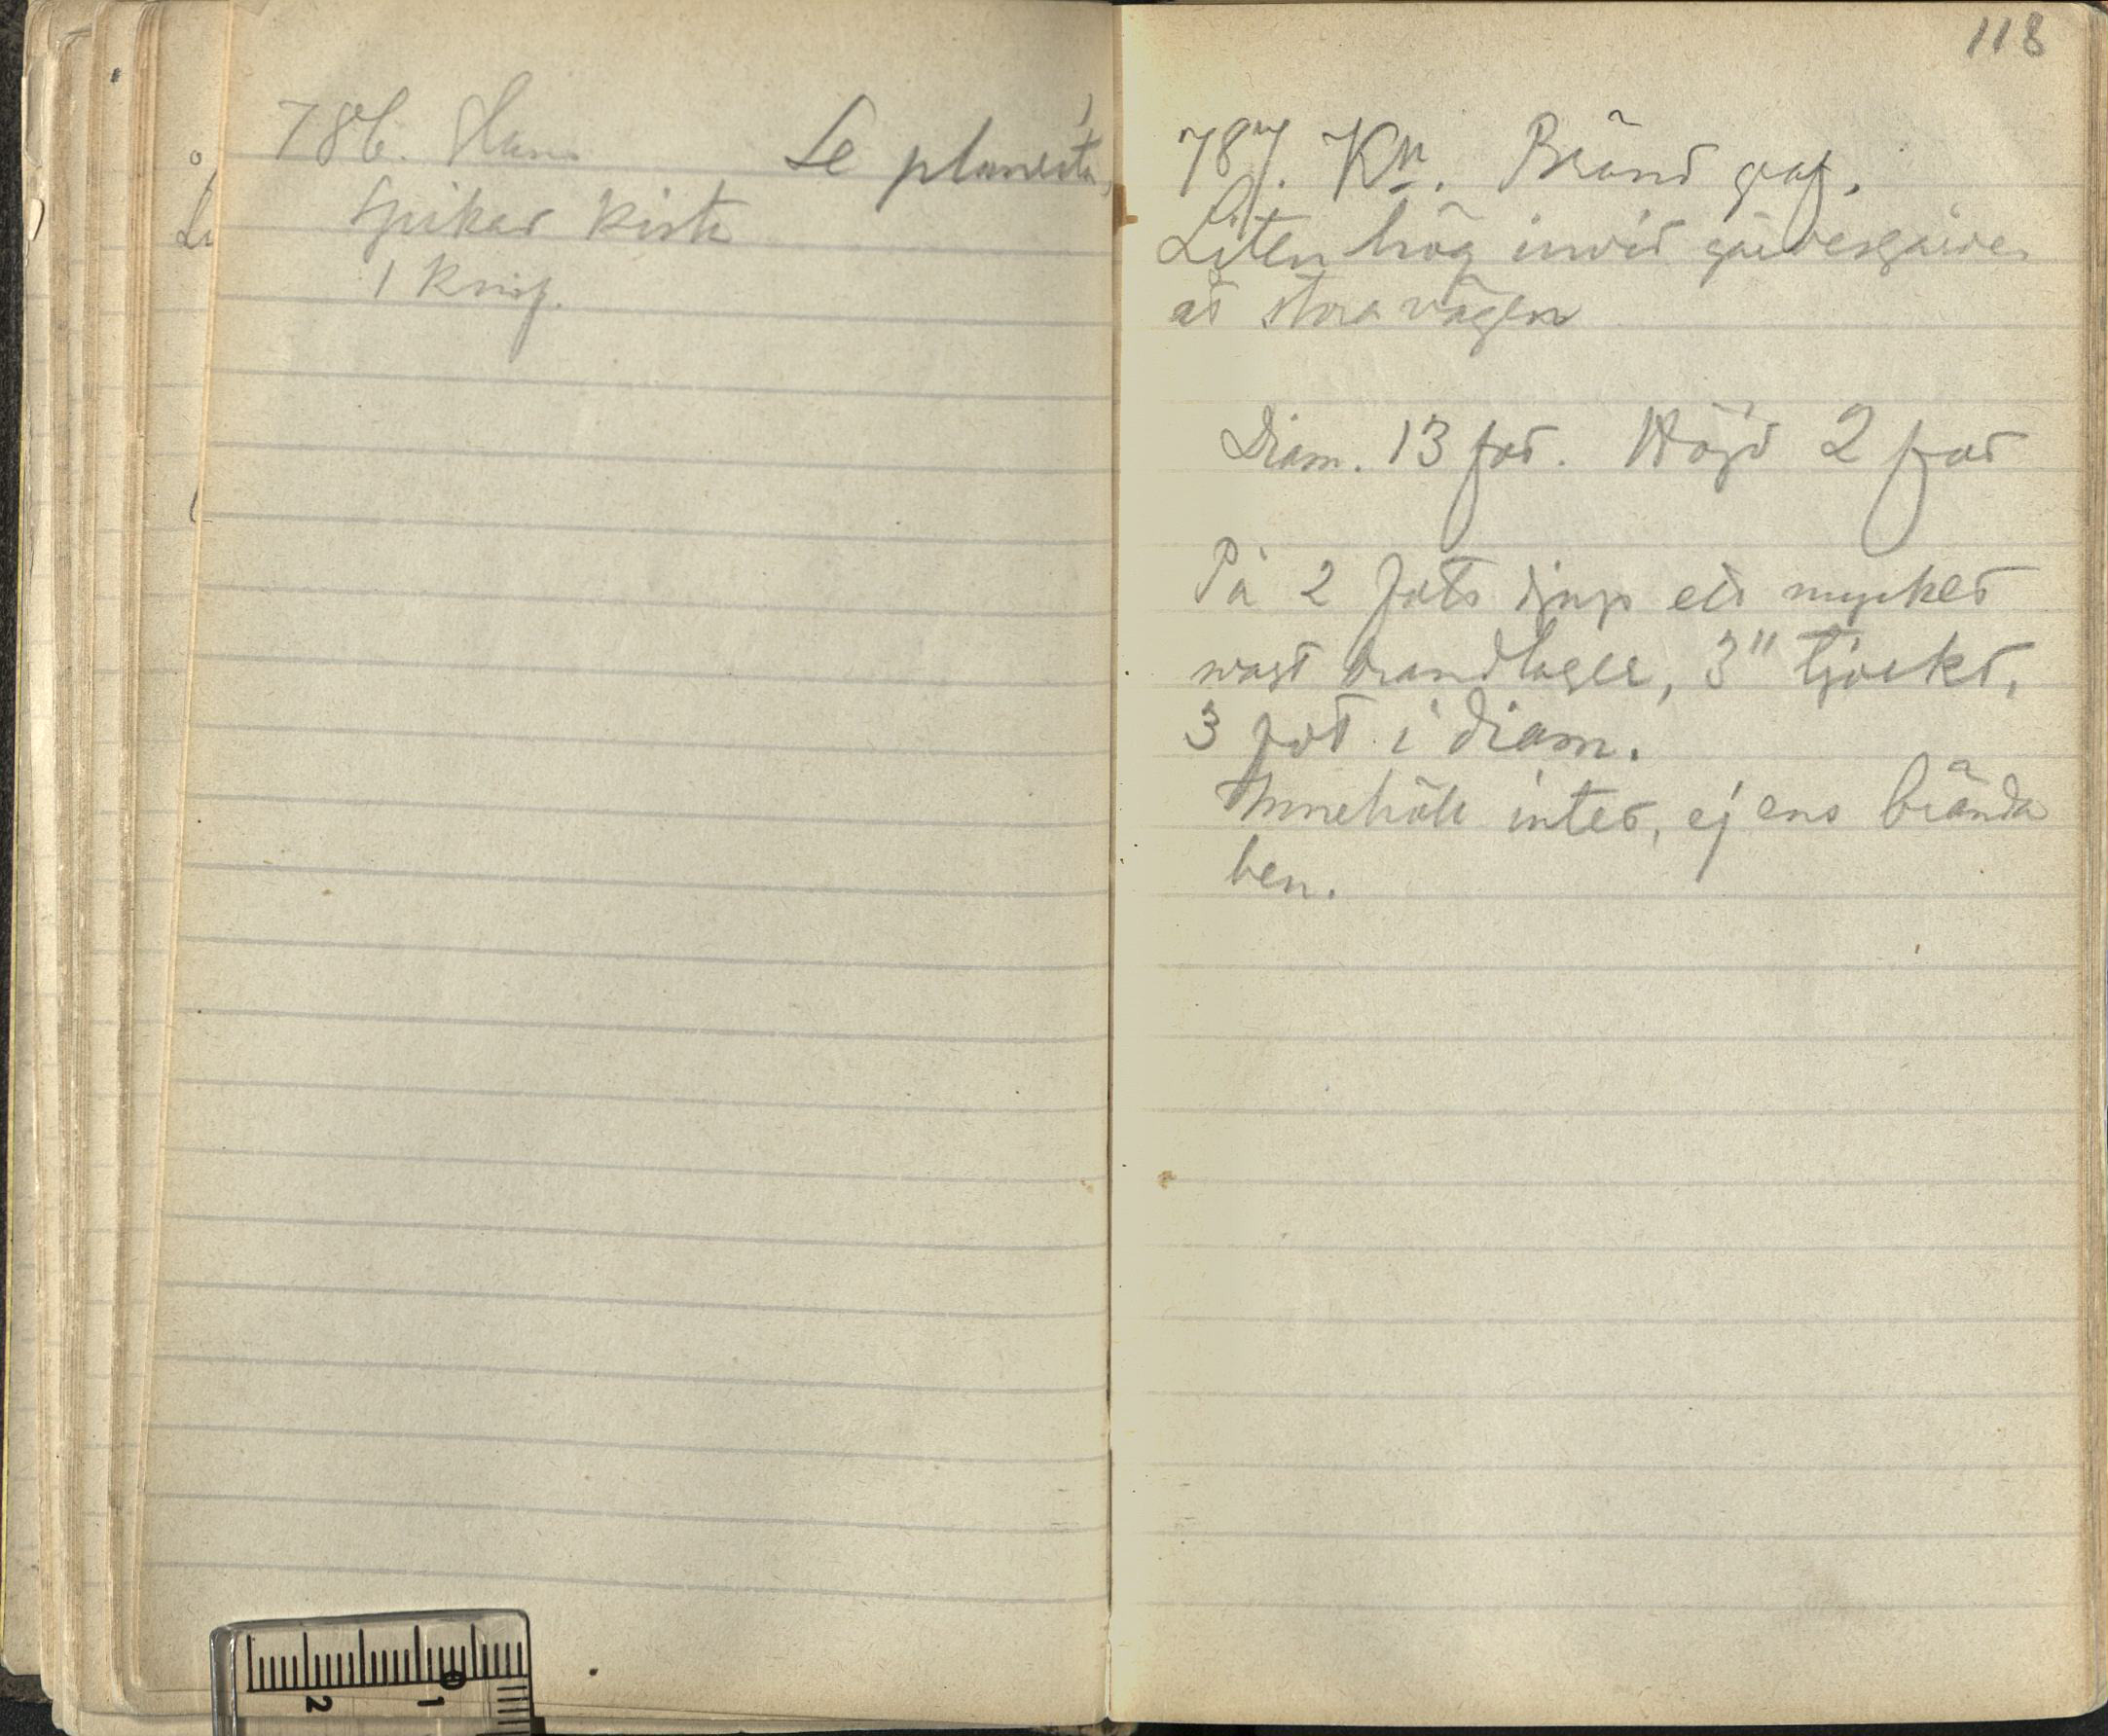 786. Ham
Se planerta
Spikad kista
1 Knif.
118
787. Kn. Bränd graf.
Liten hög invid gärdesgården
åt stora vägen
Diam. 13 fot. Höjd 2 fot
På 2 fots djup ett mycket
svagt brandlager, 3" tjockt,
3 fot i diam.
Innehöll intet, ej ens brända
ben.
2
1
0